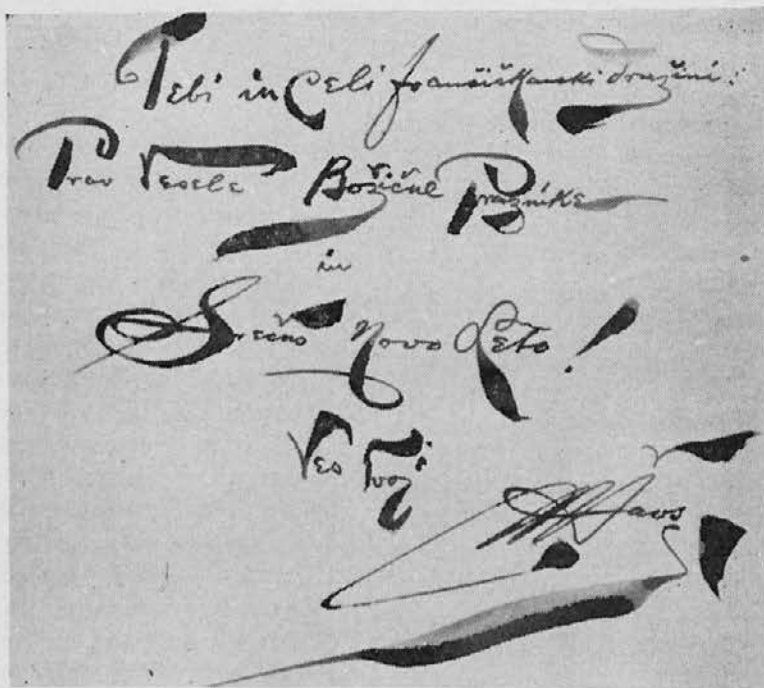 Tebi in Celi frančiškanski družini:
Prav Vesele Božične Praznike
in
Srečno Novo Leto!
Ves Tvoj